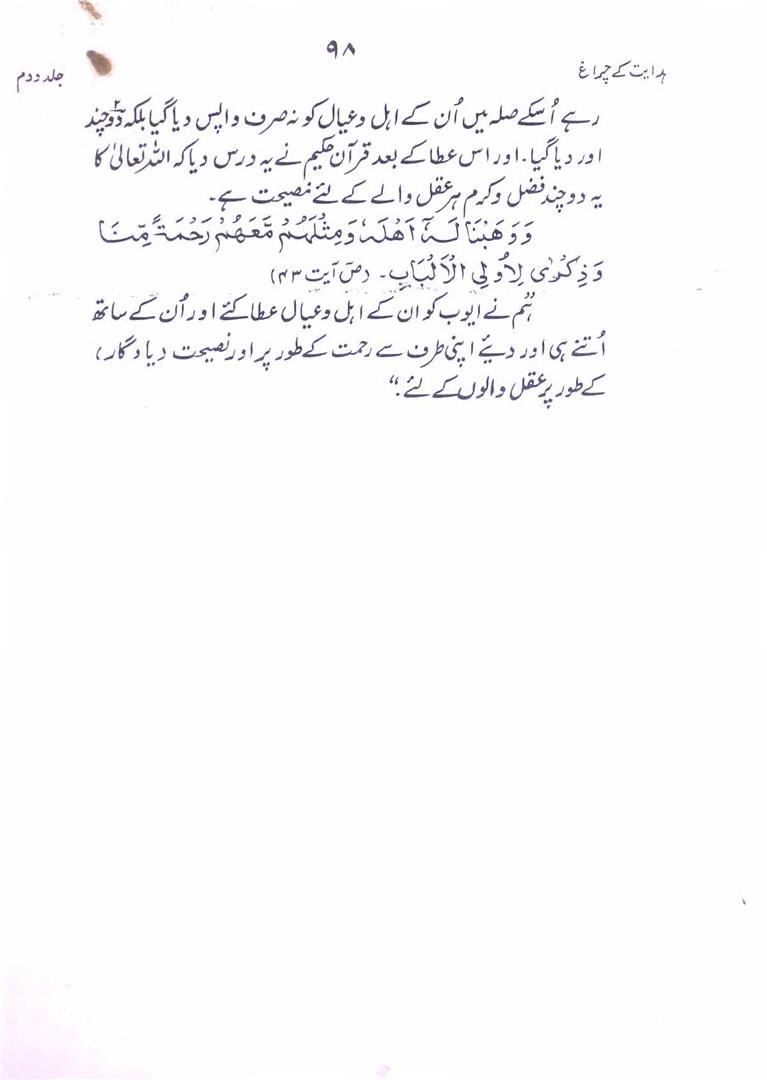 ۹۸
ہدایت کے چراغ
جلد دوم
رہے اُسکے صلہ میں اُن کے اہل وعیال کو نہ صرف واپس دیا گیا بلکہ دوچند
اور دیا گیا. اور اس عطا کے بعد قرآن حکیم نے یہ درس دیا کہ اللہ تعالیٰ کا
یہ دوچند فضل وکرم ہر عقل والے کے لئے نصیحت ہے۔
وَوَهَبْنَا لَهٗٓ اَهْلَهٗ وَمِثْلَهُمْ مَّعَهُمْ رَحْمَةً مِّنَّا
وَذِكْرٰى لِاُولِي الْاَلْبَابِ۔ (صٓ آیت ۴۳)
ہم نے ایوب کو ان کے اہل وعیال عطا کئے اور اُن کے ساتھ
اُتنے ہی اور دیئے اپنی طرف سے رحمت کے طور پر اور نصیحت (یادگار)
کے طور پر عقل والوں کے لئے."